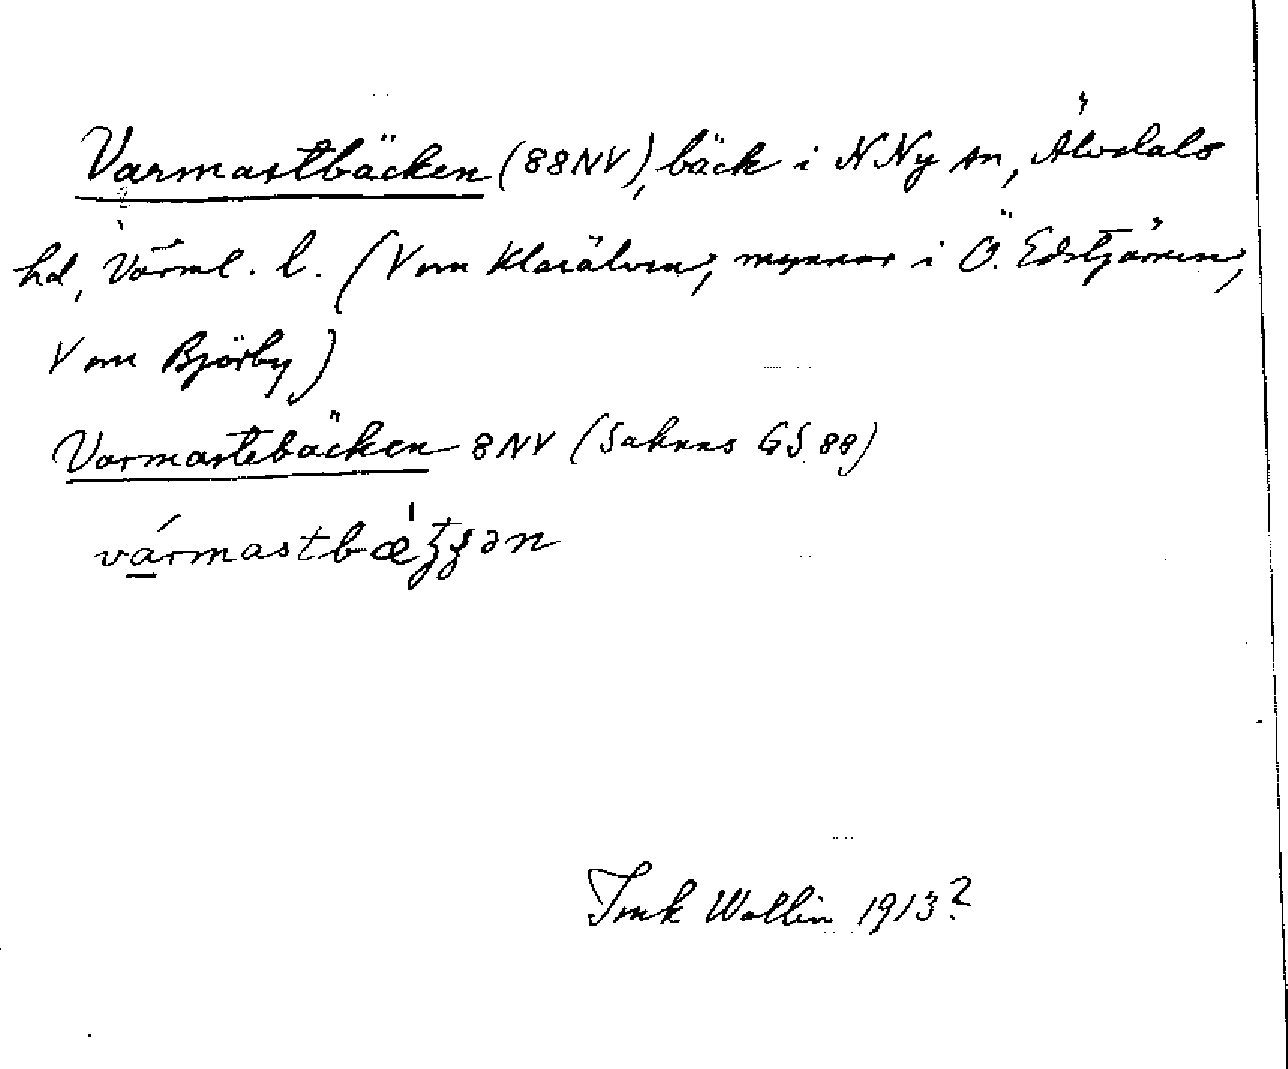 Varmastbäcken (88NV), bäck i N Ny sn, Älvdals
hd, Värml. l. (V om Klarälven, mynnar i Ö. Edstjärnen,
V om Björby)
Varmastebäcken 8NV (Saknas GS 88)
vármastbæ
Wallin 1913?